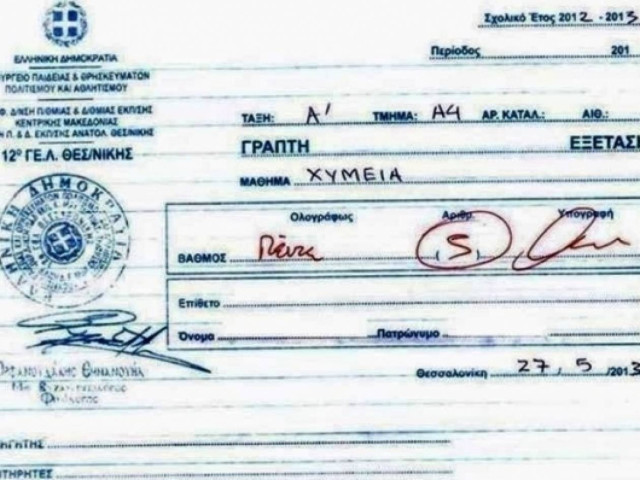 Σχολικό Έτος 2012 - 2013
Περίοδος 201
ΕΛΛΗΝΙΚΗ ΔΗΜΟΚΡΑΤΙΑ
ΥΡΓΕΙΟ ΠΑΙΔΕΙΑΣ & ΘΡΗΣΚΕΥΜΑΤΩΝ
ΠΟΛΙΤΙΣΜΟΥ ΚΑΙ ΑΘΛΗΤΙΣΜΟΥ
Φ. Δ/ΝΣΗ Π/ΘΜΙΑΣ & Δ/ΘΜΙΑΣ ΕΚΠ/ΣΗΣ
ΚΕΝΤΡΙΚΗΣ ΜΑΚΕΔΟΝΙΑΣ
Η Π. & Δ. ΕΚΠ/ΣΗΣ ΑΝΑΤΟΛ. ΘΕΣ/ΝΙΚΗΣ
12º ΓΕ.Λ. ΘΕΣ/ΝΙΚΗΣ
ΤΑΞΗ: Α' ΤΜΗΜΑ: Α4 ΑΡ. ΚΑΤΑΛ.: ΑΙΘ.:
ΓΡΑΠΤΗ ΕΞΕΤΑΣΗ
ΜΑΘΗΜΑ ΧΥΜΕΙΑ
Ολογράφως Αριθμ. Υπογραφή
ΒΑΘΜΟΣ Πέντε (5)
Επίθετο
Όνομα Πατρώνυμο
Θεσσαλονίκη 27, 5 /2013
ΗΓΗΤΗΣ
ΤΗΡΗΤΕΣ